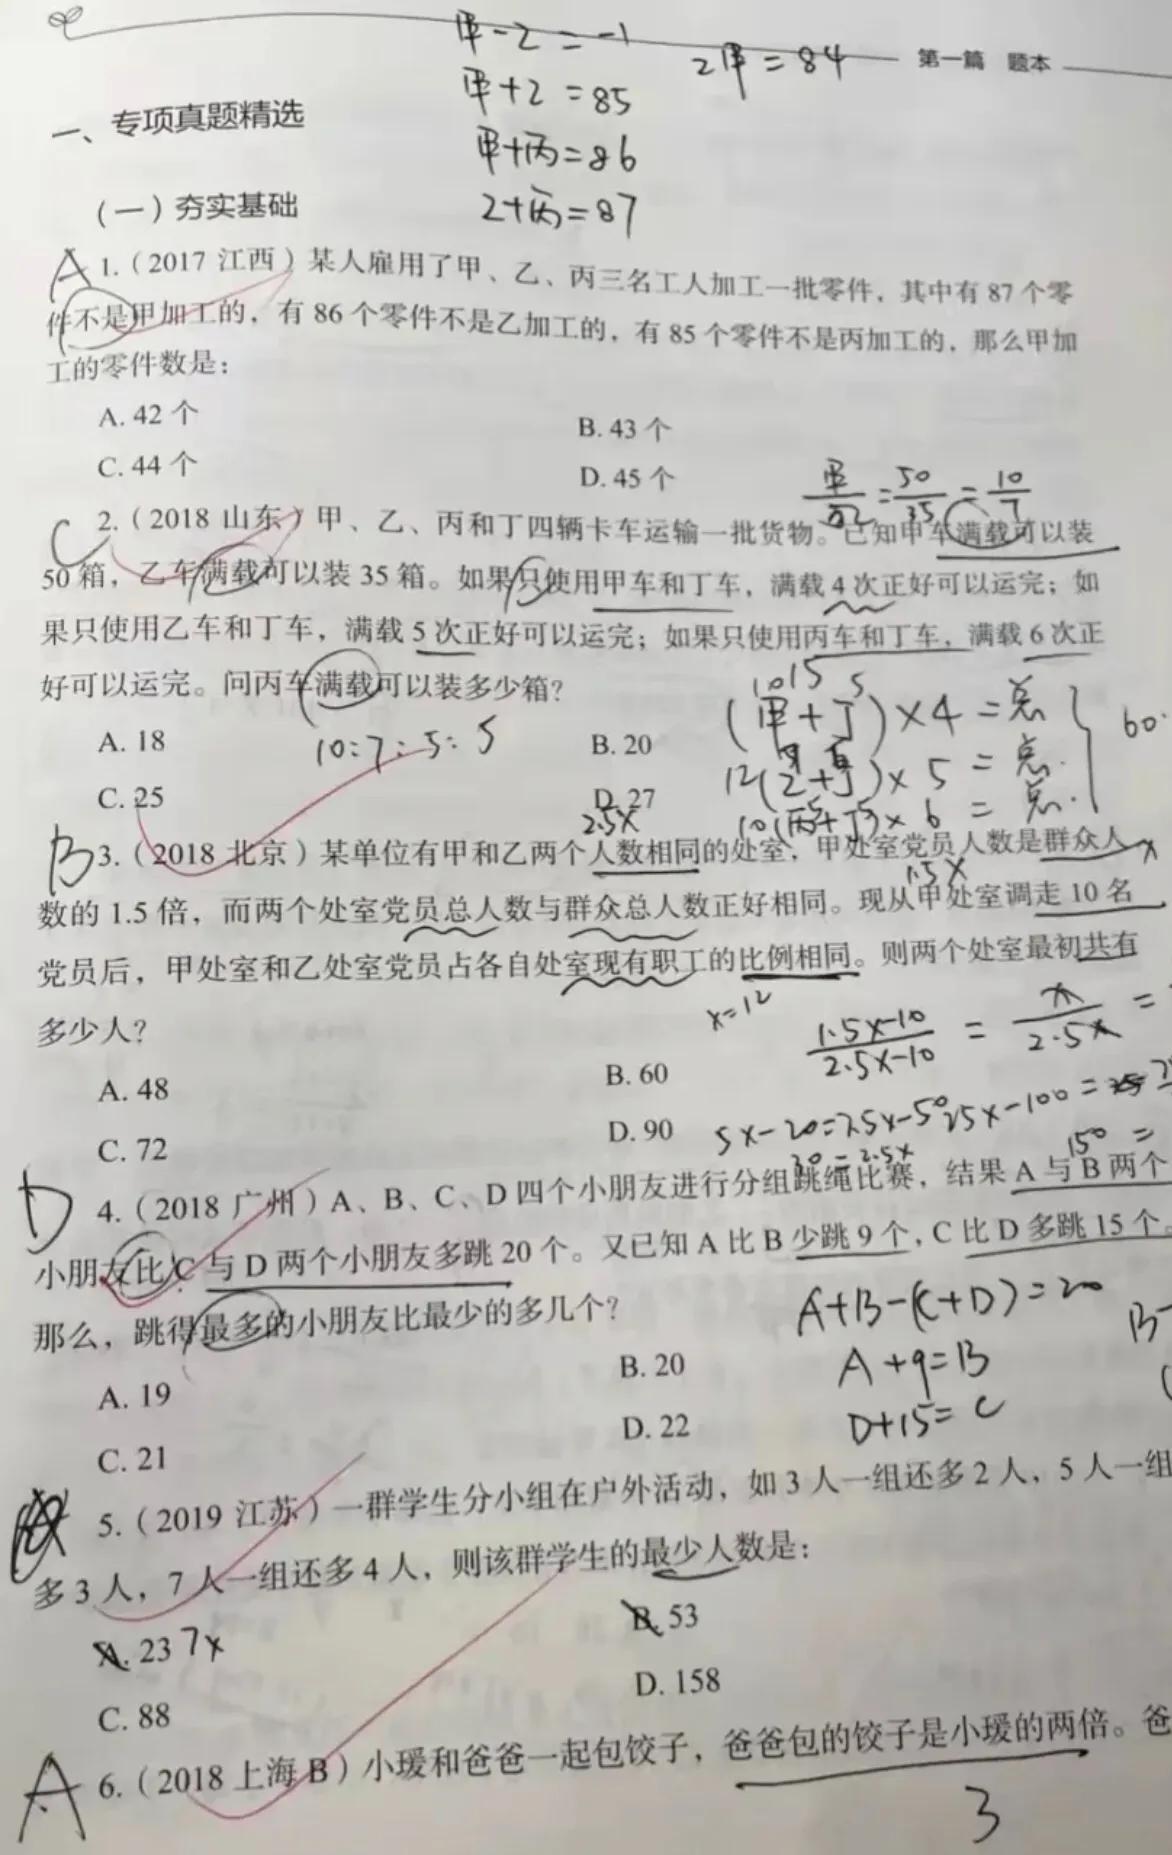 甲-2=-1
2甲=84
第一篇 题本
甲+2=85
一、专项真题精选
甲+丙=86
(一)夯实基础
2+丙=87
A 1.(2017 江西)某人雇用了甲、乙、丙三名工人加工一批零件，其中有 87 个零
件不是甲加工的，有 86 个零件不是乙加工的，有 85 个零件不是丙加工的，那么甲加
工的零件数是：
A. 42 个
B. 43 个
C. 44 个
D. 45 个
50/35=10/7
C 2.(2018 山东)甲、乙、丙和丁四辆卡车运输一批货物。已知甲车满载可以装
50 箱，乙车满载可以装 35 箱。如果只使用甲车和丁车，满载 4 次正好可以运完；如
果只使用乙车和丁车，满载 5 次正好可以运完；如果只使用丙车和丁车，满载 6 次正
好可以运完。问丙车满载可以装多少箱？
10 15 5
(甲+丁)×4=总
60
A. 18
10:7:5:5
B. 20
12(2+丁)×5=总
C. 25
D. 27
10(丙+丁)×6=总
2.5x
B 3.(2018 北京)某单位有甲和乙两个人数相同的处室，甲处室党员人数是群众人
x
1.5x
数的 1.5 倍，而两个处室党员总人数与群众总人数正好相同。现从甲处室调走 10 名
党员后，甲处室和乙处室党员占各自处室现有职工的比例相同。则两个处室最初共有
多少人？
x=12
1.5x-10/2.5x-10=x/2.5x=
A. 48
B. 60
C. 72
D. 90
5x-20=2.5x-50
25x-100=
20=2.5x
150=
D 4.(2018 广州)A、B、C、D 四个小朋友进行分组跳绳比赛，结果 A 与 B 两个
小朋友比 C 与 D 两个小朋友多跳 20 个。又已知 A 比 B 少跳 9 个，C 比 D 多跳 15 个。
那么，跳得最多的小朋友比最少的多几个？
A+B-(C+D)=20
B-
A. 19
B. 20
A+9=B
C. 21
D. 22
D+15=C
5.(2019 江苏)一群学生分小组在户外活动，如 3 人一组还多 2 人，5 人一组
多 3 人，7 人一组还多 4 人，则该群学生的最少人数是：
A. 23 7x
B. 53
C. 88
D. 158
A 6.(2018 上海 B)小瑗和爸爸一起包饺子，爸爸包的饺子是小瑗的两倍。爸
3